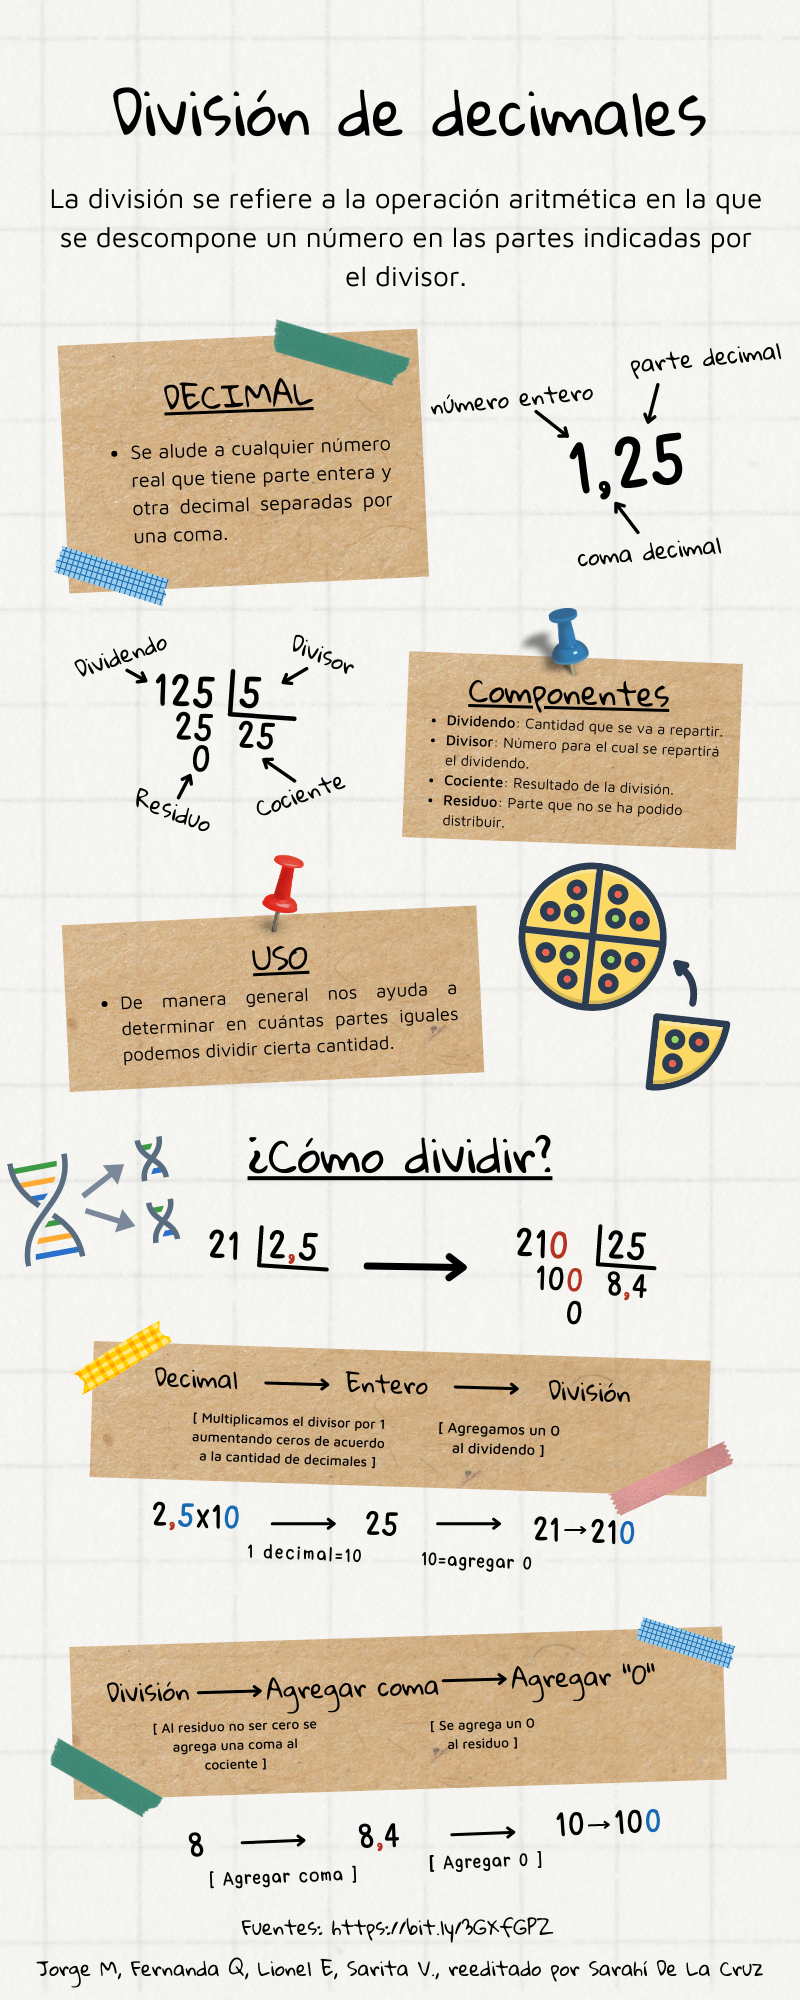 División de decimales
La división se refiere a la operación aritmética en la que
se descompone un número en las partes indicadas por
el divisor.
DECIMAL
• Se alude a cualquier número
real que tiene parte entera y
otra decimal separadas por
una coma.
parte decimal
número entero
1,25
coma decimal
Dividendo
Divisor
125 5
25 25
0
Residuo
Cociente
Componentes
• Dividendo: Cantidad que se va a repartir.
• Divisor: Número para el cual se repartirá
el dividendo.
• Cociente: Resultado de la división.
• Residuo: Parte que no se ha podido
distribuir.
USO
• De manera general nos ayuda a
determinar en cuántas partes iguales
podemos dividir cierta cantidad.
¿Cómo dividir?
21 2,5
210 25
100 8,4
0
Decimal → Entero → División
[ Multiplicamos el divisor por 1
aumentando ceros de acuerdo
a la cantidad de decimales ]
[ Agregamos un 0
al dividendo ]
2,5x10 → 25 → 21→210
1 decimal=10
10=agregar 0
División → Agregar coma → Agregar "0"
[ Al residuo no ser cero se
agrega una coma al
cociente ]
[ Se agrega un 0
al residuo ]
8 → 8,4 → 10→100
[ Agregar coma ]
[ Agregar 0 ]
Fuentes: https://bit.ly/3GXfGPZ
Jorge M, Fernanda Q, Lionel E, Sarita V., reeditado por Sarahí De La Cruz